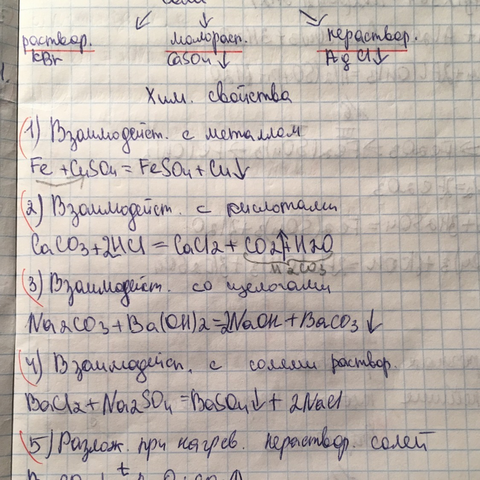 раствор. малораст. нераствор.
KBr CaSO4↓ AgCl↓
Хим. свойства
1) Взаимодейст. с металлом
Fe + CuSO4 = FeSO4 + Cu↓
2) Взаимодейст. с кислотами
CaCO3 + 2HCl = CaCl2 + CO2↑ + H2O
H2CO3
3) Взаимодейст. со щелочами
Na2CO3 + Ba(OH)2 = 2NaOH + BaCO3↓
4) Взаимодейст. с солями раствор.
BaCl2 + Na2SO4 = BaSO4↓ + 2NaCl
5) Разлож. при нагрев. нераствор. солей